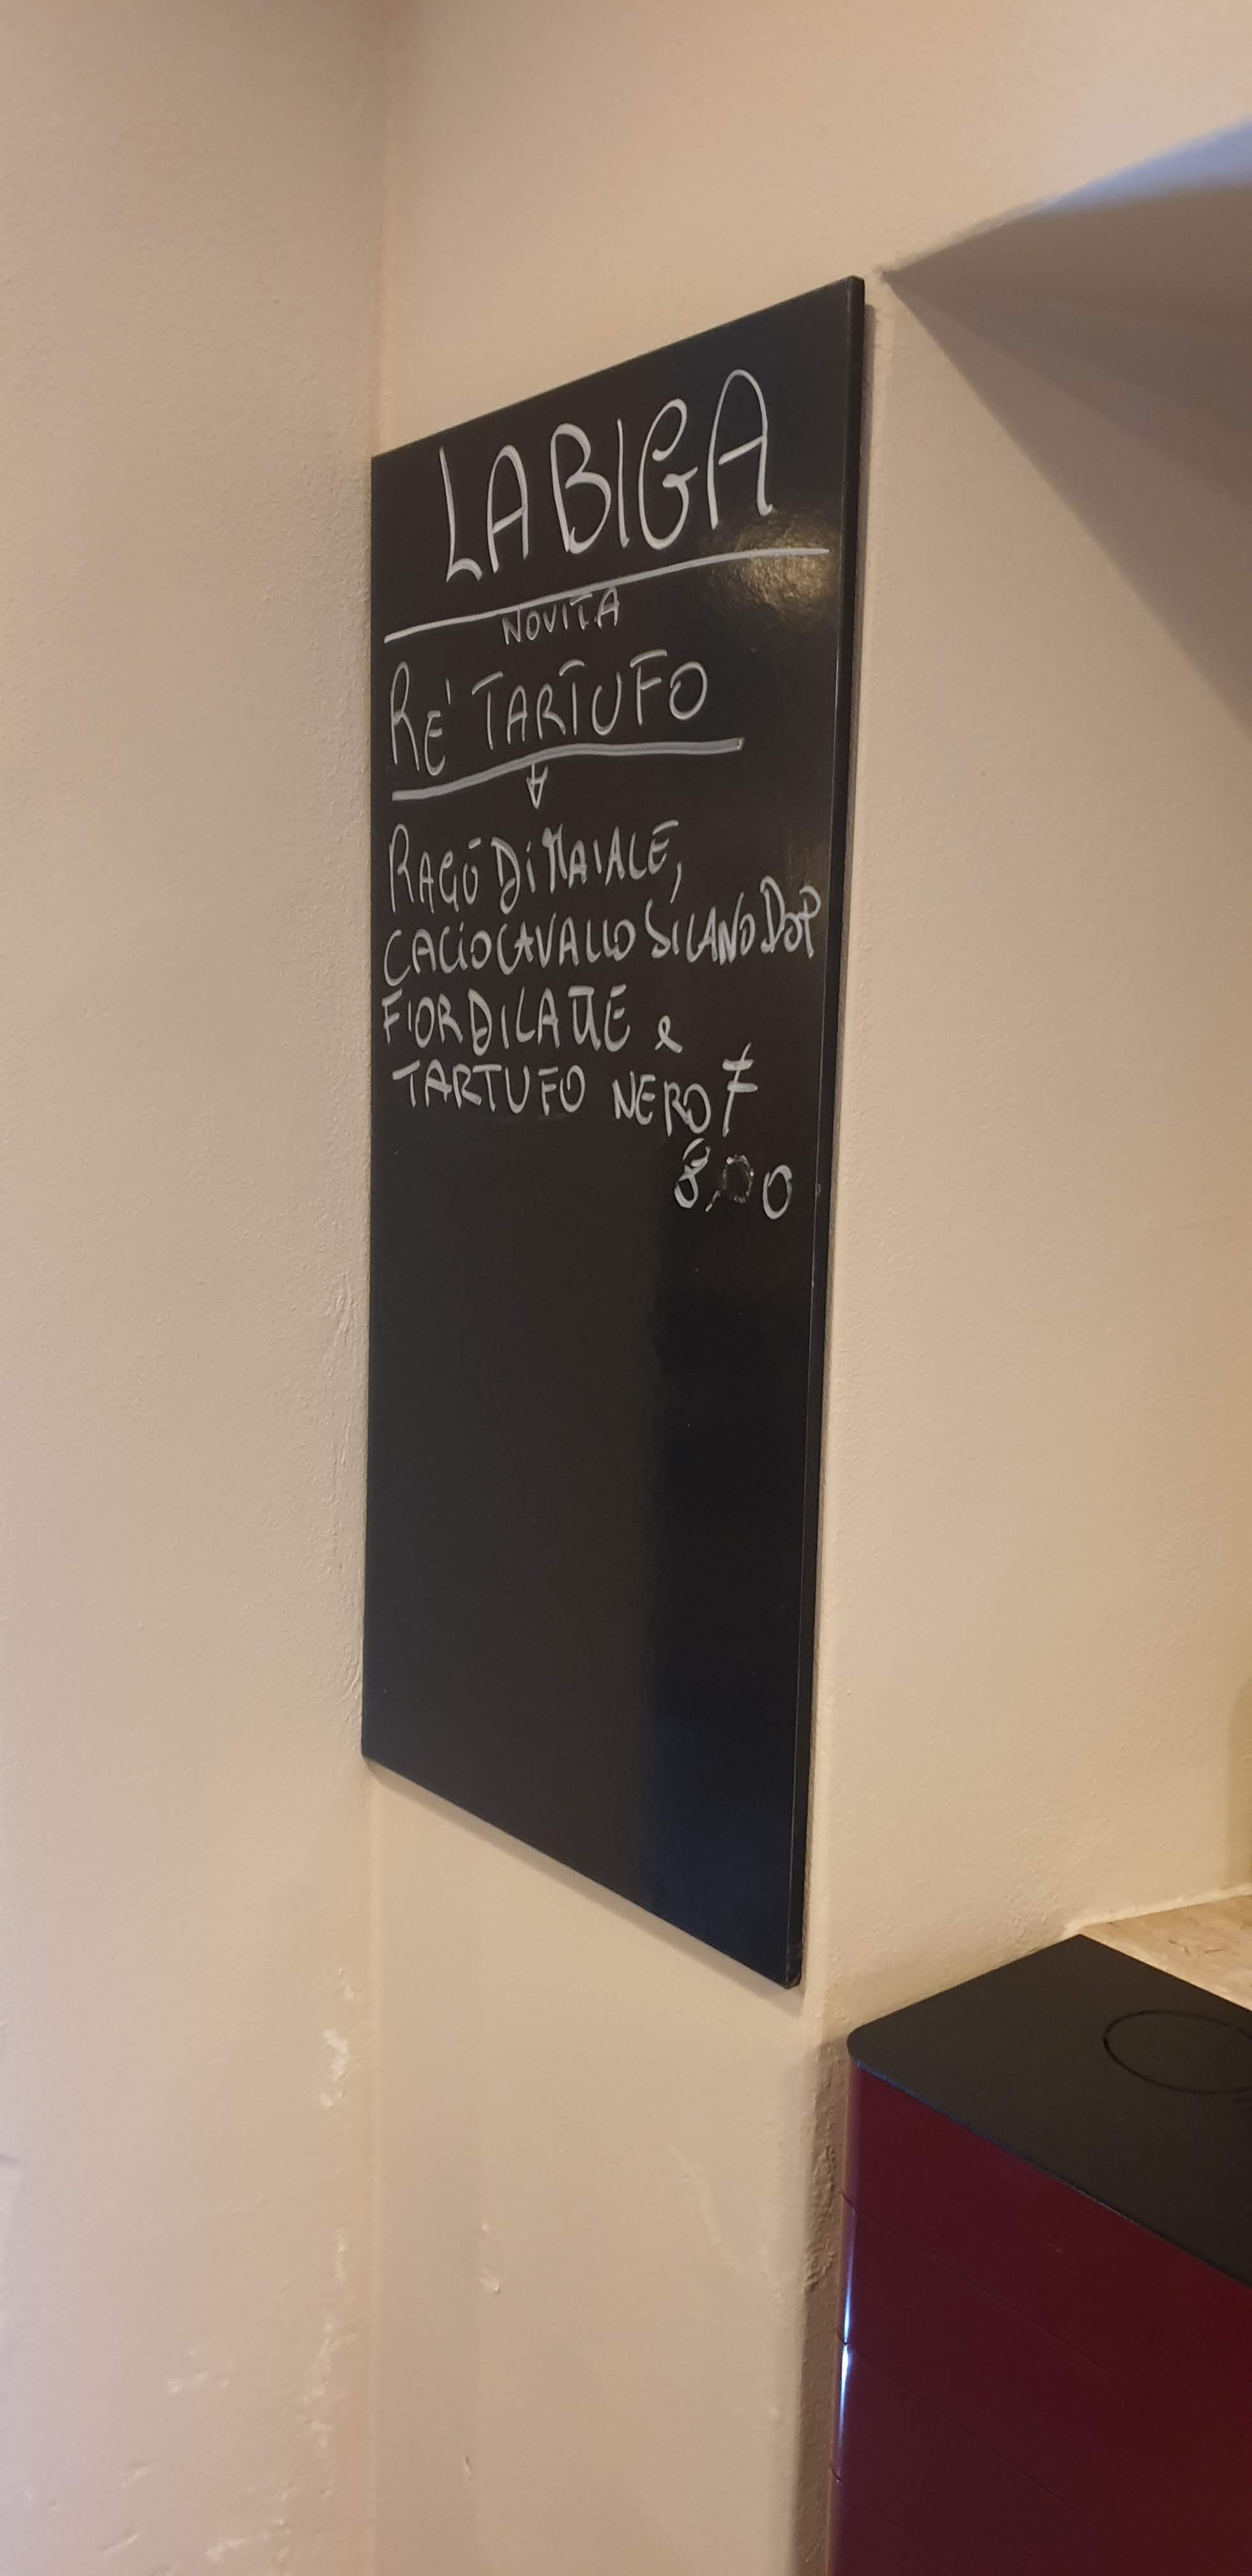 LA BIGA
NOVITA
RE' TARTUFO
RAGÚ DI MAIALE,
CACIOCAVALLO SILANO DOP
FIOR DI LATTE e
TARTUFO NERO
8, 0